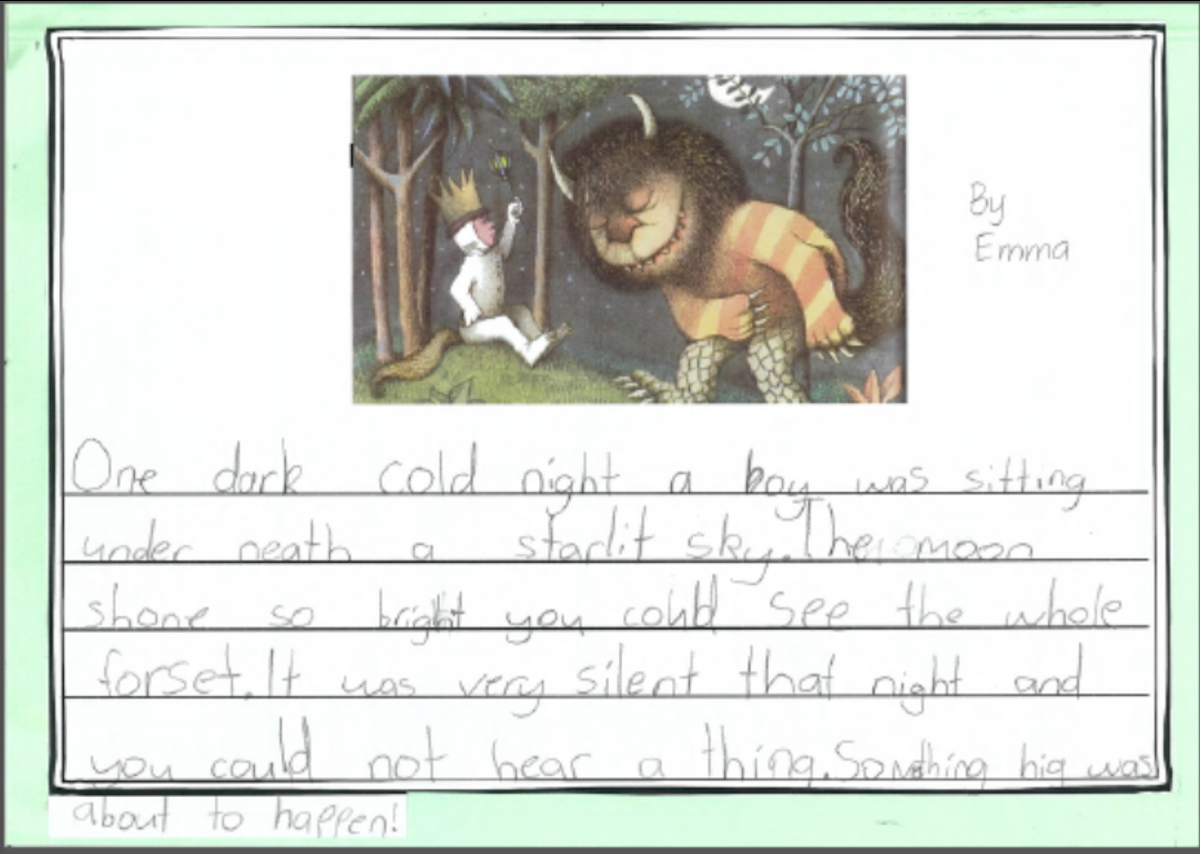 By
Emma
One dark cold night a boy was sitting
under neath a starlit sky. The moon
shone so bright you could see the whole
forset. It was very silent that night and
you could not hear a thing. Somthing big was
about to happen!